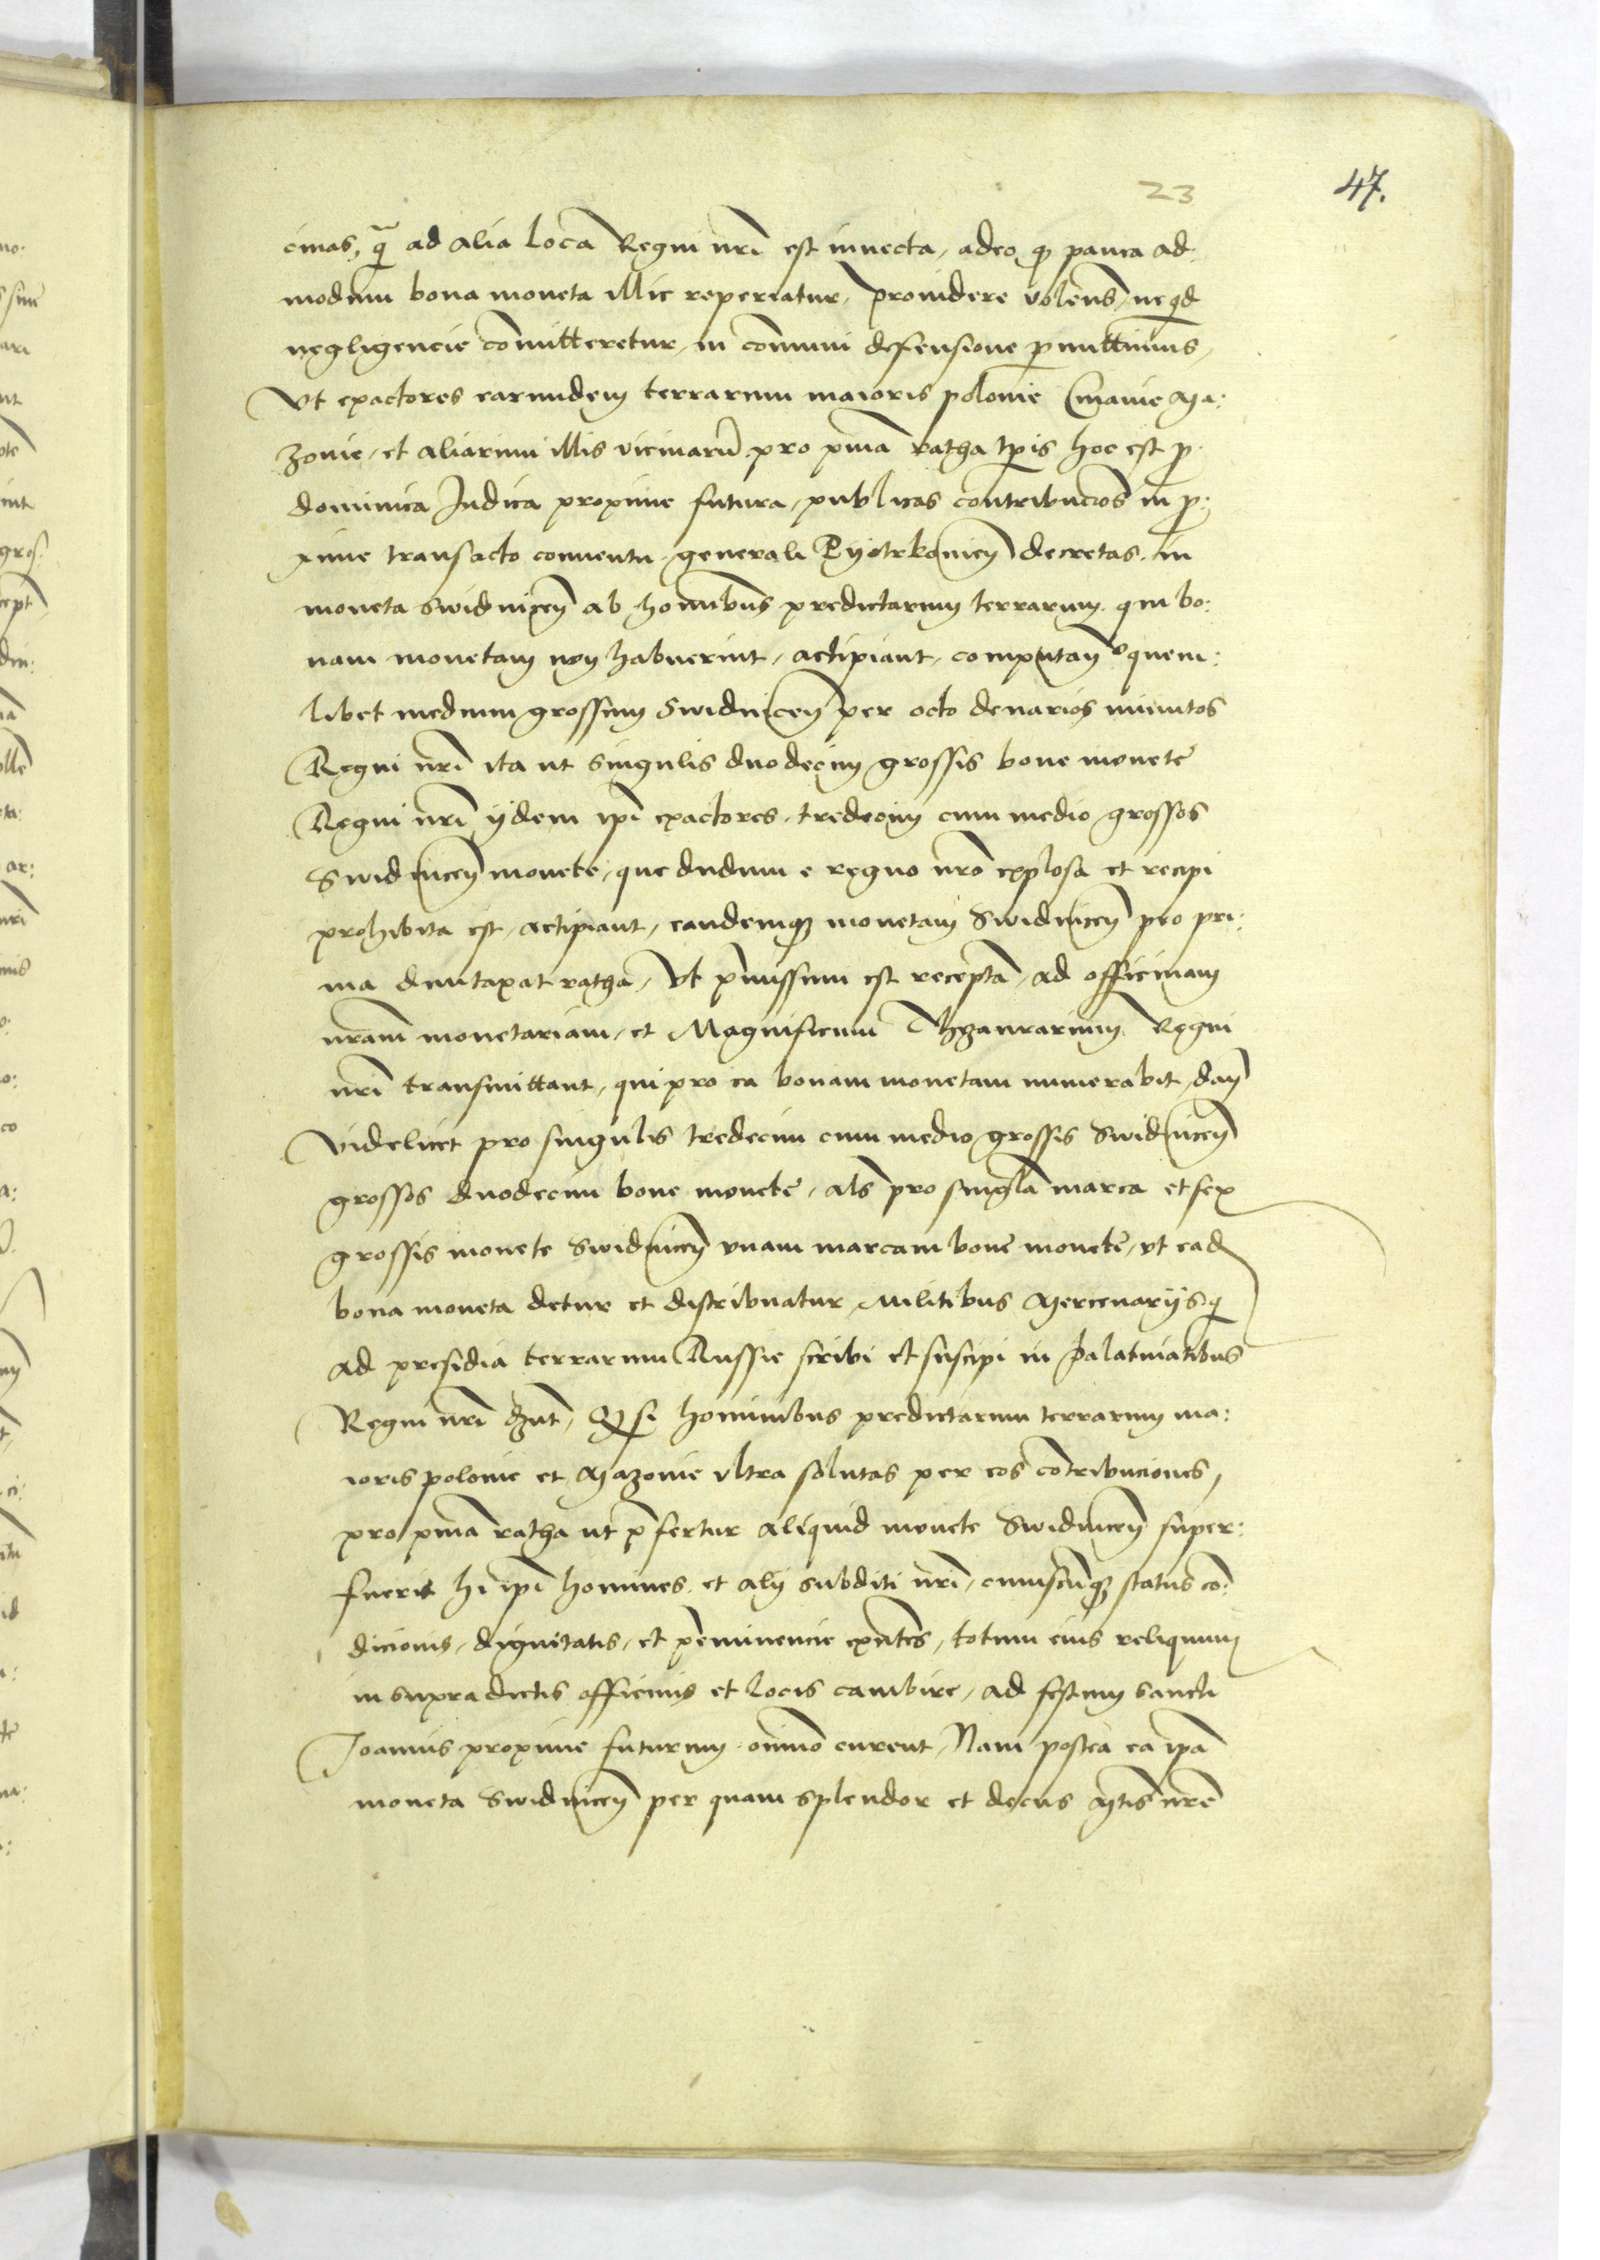 23
47.
cinas, q̃ ad alia loca Regni nr̃i est invecta, adeo q pauca ad:
modum bona moneta illic reperiatur, providere volens, ne qd
negligencie com̃itteretur, in com̃uni defensione permittimus,
Vt exactores earundem terrarum maioris polonie Cuiavie Ma:
zovie, et aliarum illis vicinarũ pro prima ratha tp̃is hoc est p
dominica Iudica proxime futura, publicas contribucio͂s in p:
xime transacto conventu generali Pyotrkovien̄ decretas, in
moneta Swidnicen̄ ab ho͂ibus predictarum terrarum, qui bo:
nam monetam non habuerint, accipiant, computan̄ quem:
libet medium grossum Swidnicen̄ per octo denarios minutos
Regni nr̃i ita ut singulis duodecim grossis bone monete
Regni nr̃i ijdem ip̃i exactores, tredecim cum medio grossos
Swidnicen̄ monete, que dudum e regno nr̃o explosa et recipi
prohibita est, accipiant, eandemq3 monetam Swidnicen̄ pro pri:
ma duntaxat ratha, Vt p̃missum est recepta, ad officinam
nr̃am monetariam, et Magnificum Thezaurarium Regni
nr̃i transmittant, qui pro ea bonam monetam numerabit, dan̄
videlicet pro singulis tredecim cum medio grossis Swidnicen̄
grossos duodecim bone monete, als̃ pro singula marca et sex
grossis monete Swidnicen̄ vnam marcam bone monete, vt ead
bona moneta detur et distribuatur, Militibus Mercenarijs q
ad presidia terrarum Russie scribi et suscipi in Palatinatibus
Regni nr̃i dn̄t, Q si hominibus predictarum terrarum ma:
ioris polonie et Mazovie vltra solutas per eos contribuciones,
pro prima ratha ut p̃fertur aliquid monete Swidnicen̄ super:
fuerit hi ip̃i homines, et alij subditi nr̃i, cuiuscunq3 status co͂:
dicionis, dignitatis, et p̃eminencie exn̄tes, totum eius reliquum
in supradictis officinis et locis cambire, ad festum sancti
Joannis proxime futurum om̃ino curent, Nam postea ea ip̃a
moneta Swidnicen̄ per quam splendor et decus Mtis nr̃e